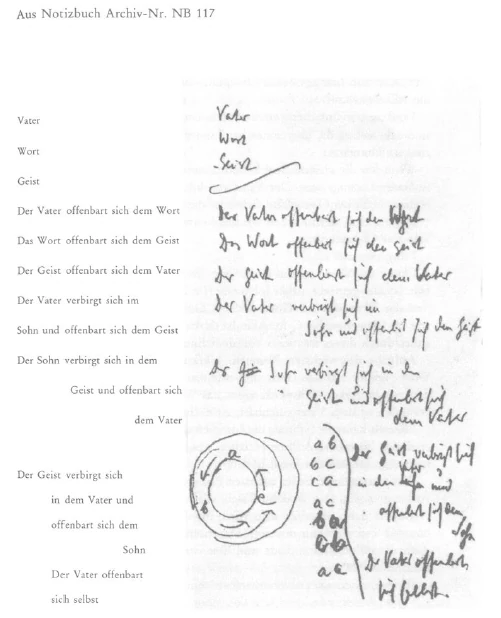 Aus Notizbuch Archiv-Nr. NB 117
Vater
Wort
Geist
Der Vater offenbart sich dem Wort
Das Wort offenbart sich dem Geist
Der Geist offenbart sich dem Vater
Der Vater verbirgt sich im
Sohn und offenbart sich dem Geist
Der Sohn verbirgt sich in dem
Geist und offenbart sich
dem Vater
Der Geist verbirgt sich
in dem Vater und
offenbart sich dem
Sohn
Der Vater offenbart
sich selbst
Vater
Wort
Geist
Der Vater offenbart sich dem Wort
Das Wort offenbart sich dem Geist
Der Geist offenbart sich dem Vater
Der Vater verbirgt sich im
Sohn und offenbart sich dem Geist
Der Sohn verbirgt sich in dem
Geist und offenbart sich
dem Vater
a
b
c
a b
b c
c a
a c
b a
a c
Der Geist verbirgt sich
Vater
in dem und
offenbart sich dem
Sohn
Der Vater offenbart
sich selbst.